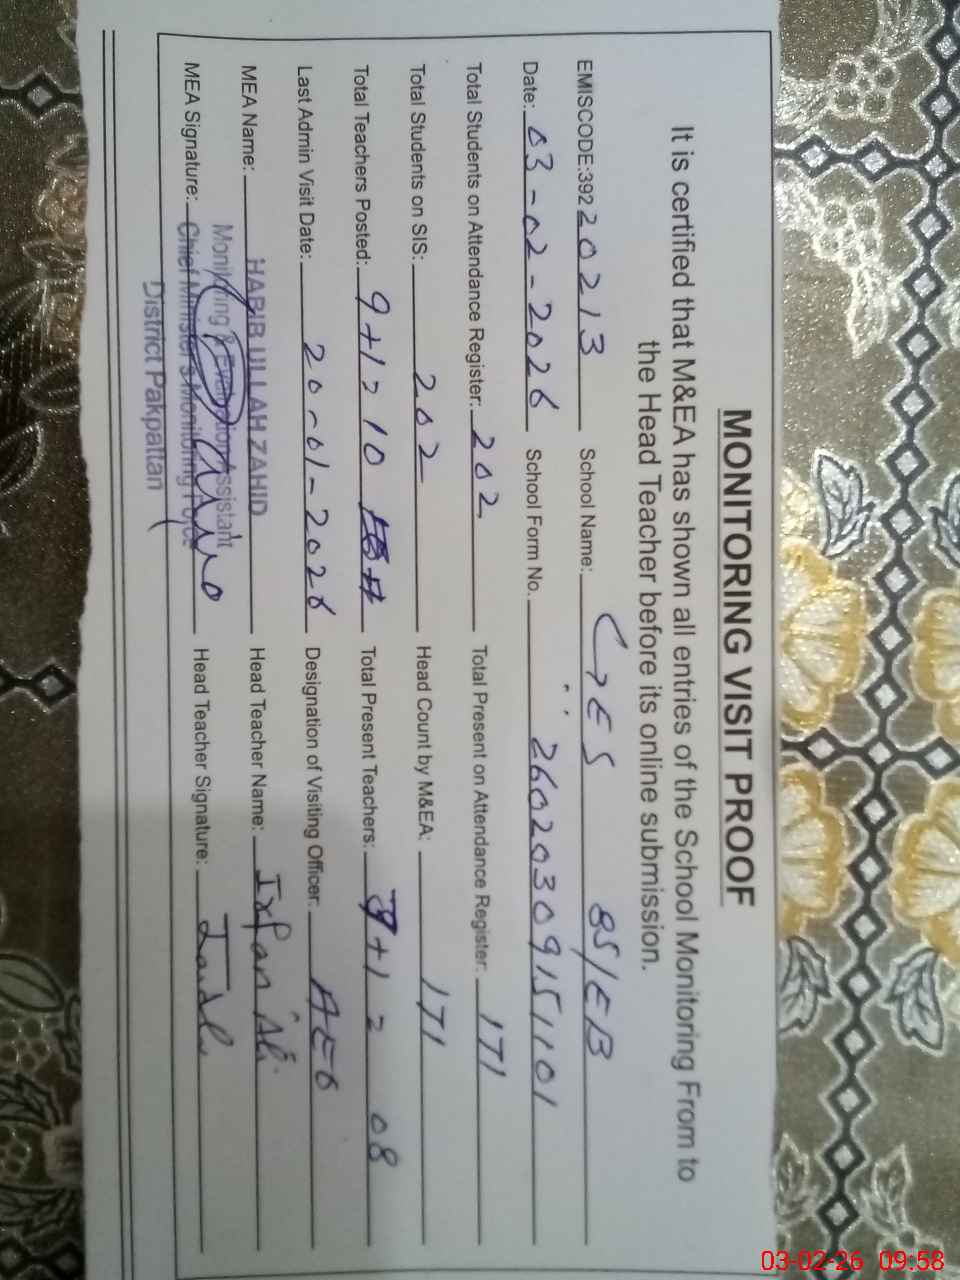 MONITORING VISIT PROOF
It is certified that M&EA has shown all entries of the School Monitoring From to
the Head Teacher before its online submission.
EMISCODE:392 20213 School Name: GES 85/EB
Date: 03-02-2026 School Form No. 26020309151101
Total Students on Attendance Register: 202 Total Present on Attendance Register: 171
Total Students on SIS: 202 Head Count by M&EA: 171
Total Teachers Posted: 9+1= 10 Total Present Teachers: +1 = 08
Last Admin Visit Date: 20-01-2026 Designation of Visiting Officer: AEO
MEA Name: HABIB ULLAH ZAHID Head Teacher Name: Irfan Ali
Monitoring & Evaluation Assistant
MEA Signature: Chief Minister's Monitoring Head Teacher Signature:
District Pakpattan
03-02-26 09:58